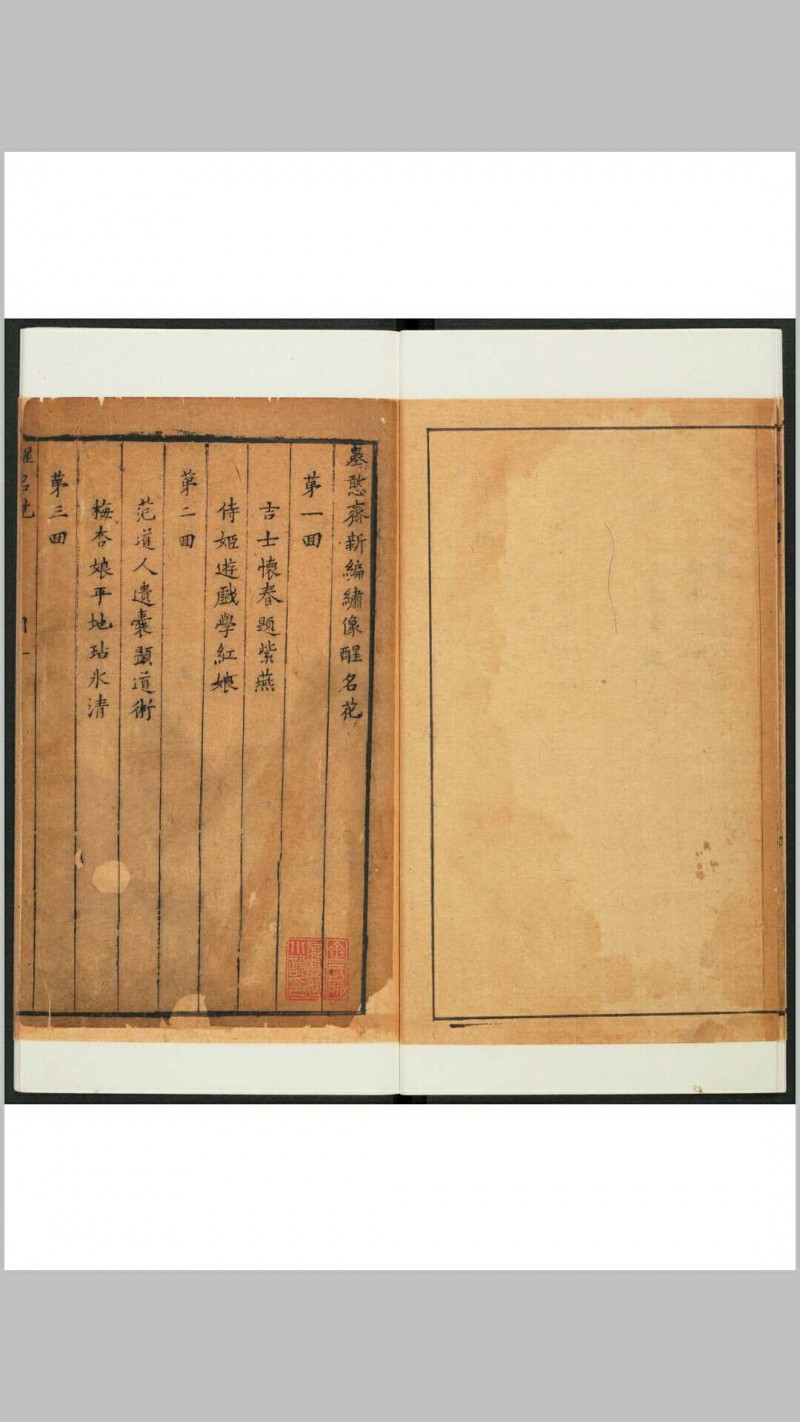 墨憨齋新編繡像醒名花
第一回
吉士懷春題紫燕
侍姬遊戲學紅娘
第二回
范道人遺囊顯道術
梅杏娘平地玷氷清
第三回
醒名花